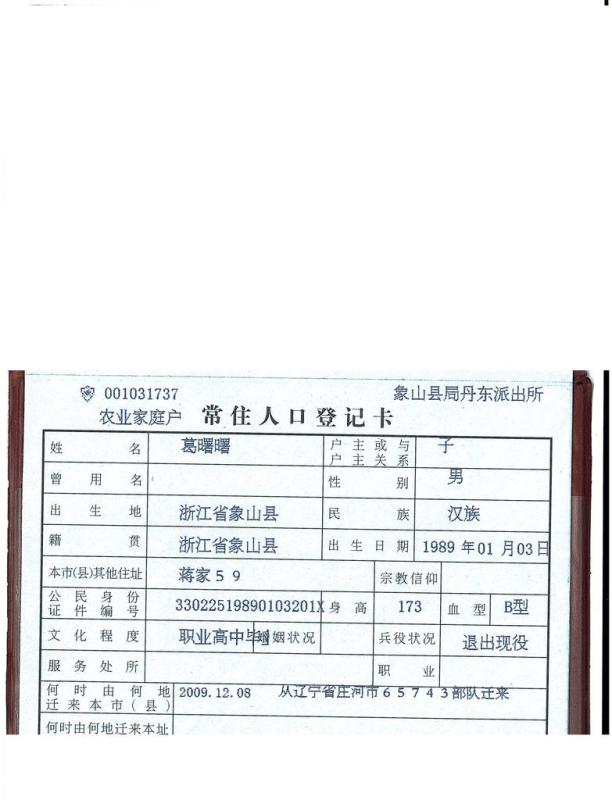 001031737 象山县局丹东派出所
农业家庭户 常住人口登记卡
姓名 葛曙曙 户主或与户主关系 子
曾用名 性别 男
出生地 浙江省象山县 民族 汉族
籍贯 浙江省象山县 出生日期 1989 年 01 月 03 日
本市(县)其他住址 蒋家59 宗教信仰
公民身份证件编号 33022519890103201X 身高 173 血型 B型
文化程度 职业高中毕 婚姻状况 兵役状况 退出现役
服务处所 职业
何时由何地迁来本市(县) 2009.12.08 从辽宁省庄河市65743部队迁来
何时由何地迁来本址